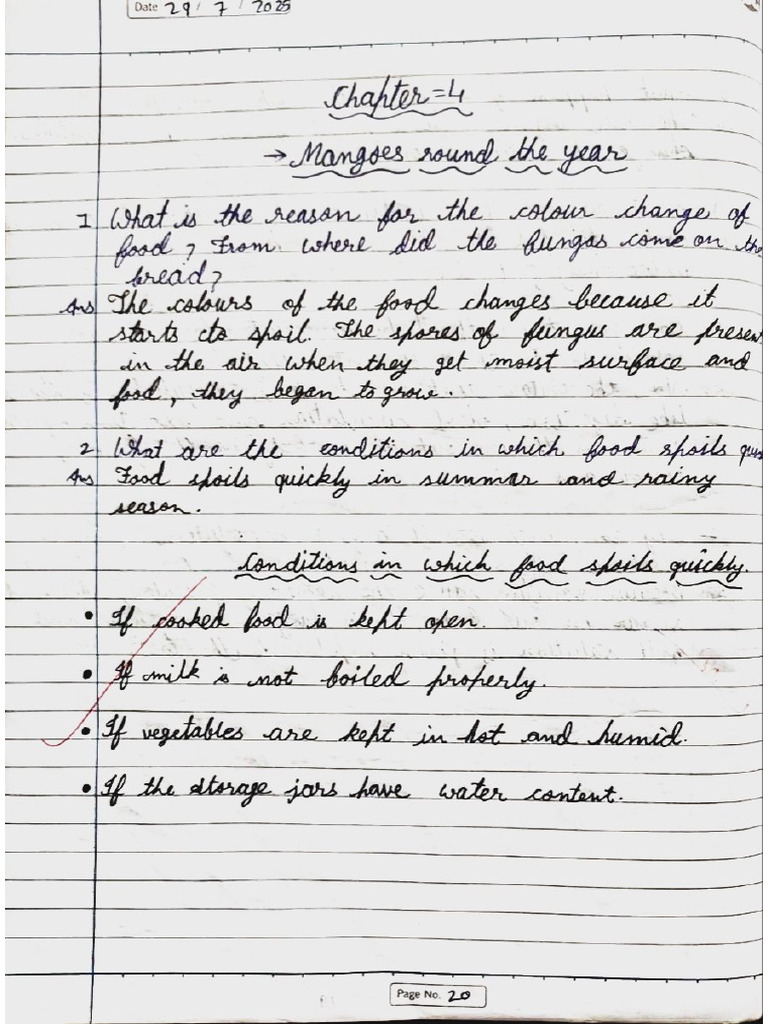 Date 29 / 7 / 2025
Chapter = 4
→ Mangoes round the year
1 What is the reason for the colour change of
food ? From where did the fungas come on the
bread?
Ans The colours of the food changes because it
starts to spoil. The spores of fungus are presen
in the air when they get moist surface and
food, they began to grow.
2 What are the conditions in which food spoils
Ans Food spoils quickly in summar and rainy
season.
Conditions in which food spoils quickly.
• If cooked food is kept open.
• If milk is not boiled properly.
• If vegetables are kept in hot and humid.
• If the storage jars have water content.
Page No. 20